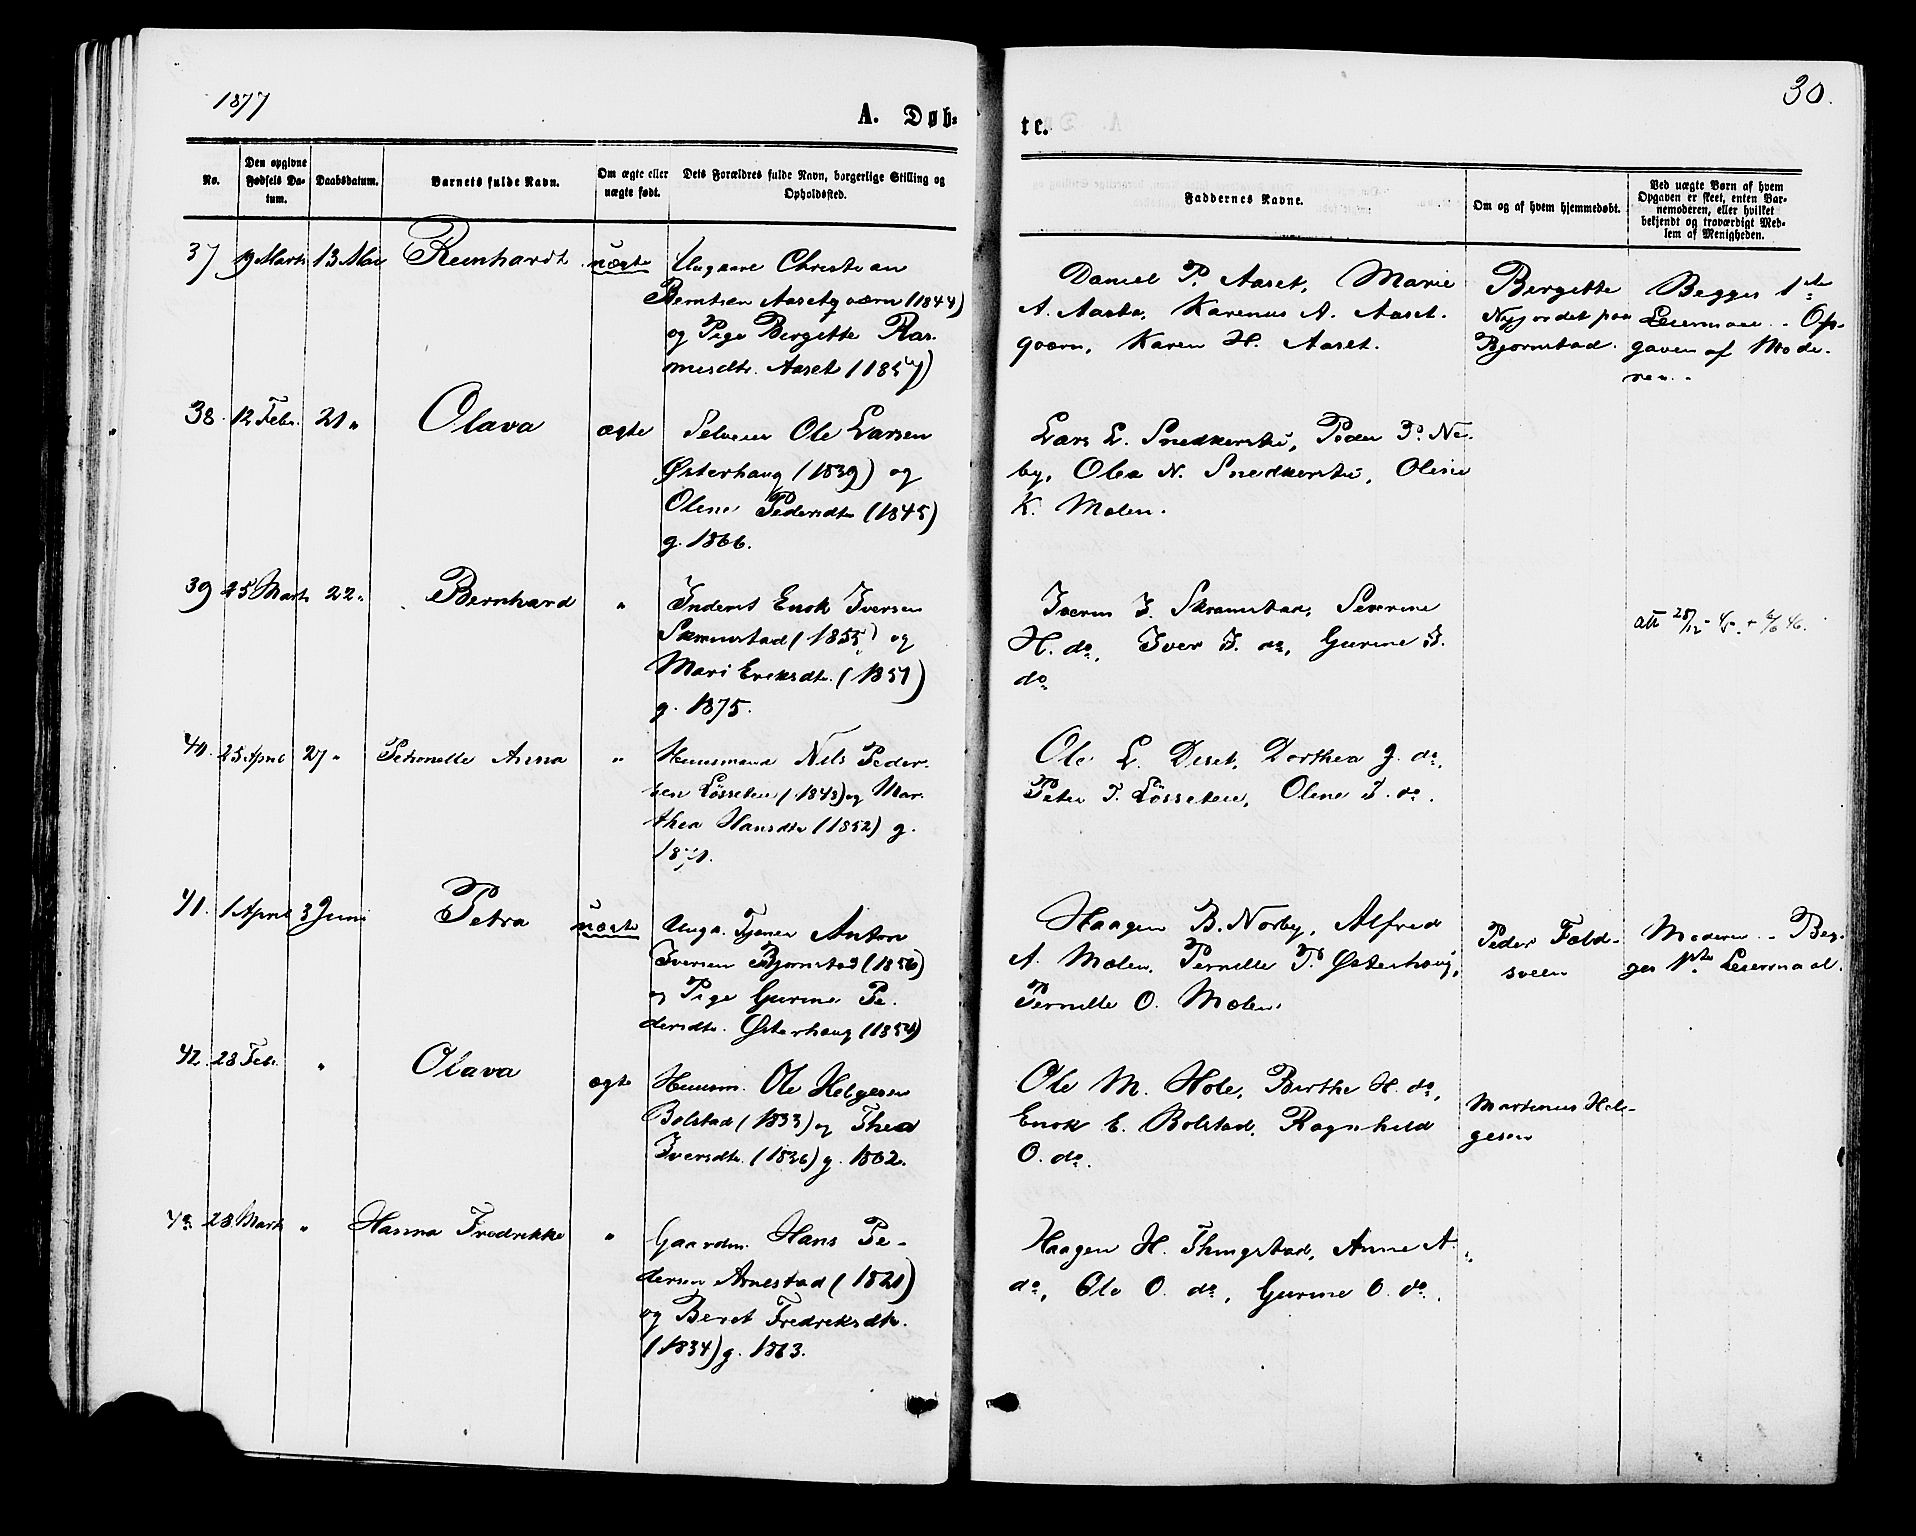 1877
30.
A. Døb-
te.
No.
Den opgivne Fødsels Datum.
Daabsdatum.
Barnets fulde Navn.
Om ægte eller uægte født.
Dets Forældres fulde Navn, borgerlige Stilling og Opholdssted.
Faddernes Navne.
Om og af hvem hjemmedøbt.
Ved uægte Børn af hvem Opgaven er skeet, enten Barnemoderen, eller hvilket bekjendt og troværdigt Medlem af Menigheden.
37 9 Marts 13 Mai Reinhardt uægte
Ungkarl Christian
Berntsen Aasetqværn (1844)
og Pige Bergitte Ras-
musdtr. Aaset (1857)
Daniel P. Aaset, Marie
A. Aasta, Karenus A. Aaset-
qværn, Karen H. Aaset.
Bergitte
Nyjordet paa
Bjørnstad.
Begges 1ste
Leiermaal. Op-
gaven af Mode-
ren.
38. 12 Febr. 21 " Olava ægte
Selveier Ole Larsen
Østerhaug (1839) og
Olene Pedersdtr (1845)
g. 1866.
Lars L. Snedkerstu, Peder P. Ne-
by, Olea N. Snedkerstu, Oline
K. Molen.
39 25 Marts 22 " Bernhard "
Inderst Enok Iversen
Skramstad (1855) og
Mari Eriksdtr. (1851)
g. 1875.
Iverin I. Skramstad, Severine
H. do, Iver I. do, Gurine I.
do
att 28/12 - 45. + 6/6 46.
40. 25 April 27 " Petronelle Anna "
Huusmand Nils Peder-
sen Løsseteie (1843) og Mar-
thea Hansdtr (1852) g.
1871.
Ole L. Deset, Dorthea J. do,
Peter P. Løsseteie, Olene P. do.
41. 1 April 3 Juni Petra uægte
Ungk. Tjener Anton
Iversen Bjørnstad (1856)
og Pige Gurine Pe-
dersdtr. Østerhaug (1854)
Haagen B. Norby, Alfred
A. Molen, Pernille P. Østerhaug,
Pernille O. Molen.
Peder Fæld-
sveen
Moderen. Beg-
ges 1ste Leiermaal.
42. 28 Febr. " Olava ægte
Huusm. Ole Helgesen
Bolstad (1833) og Thea
Iversdtr. (1836) g. 1862.
Ole M. Hole, Berthe H. do,
Enok E. Bolstad, Ragnhild
O. do.
Martinus Hel-
gesen
43. 28 Marts " Hanna Fredrikke "
Gaardm. Hans Pe-
dersen Arnestad (1821)
og Beret Fredriksdtr.
(1834) g. 1863.
Haagen H. Thingstad, Anne A.
do, Ole O. do, Gurine O. do.